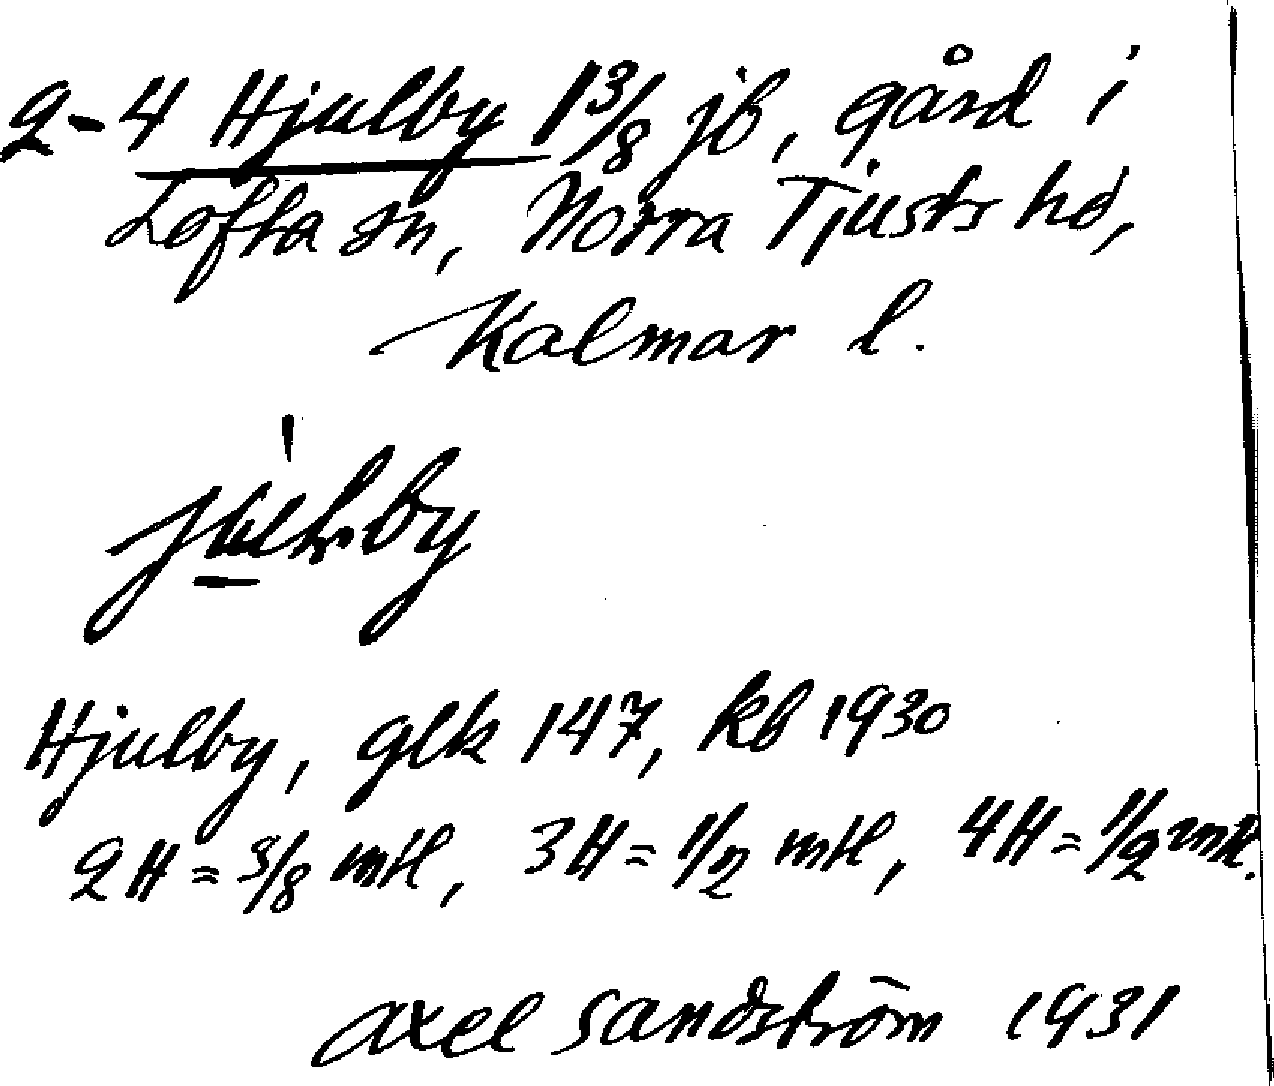 2-4 Hjulby 1 3/8 jb, gård i
Lofta sn, Norra Tjusts hd,
Kalmar l.
Hjulby, glk 147, kb 1930
2H = 3/8 mtl, 3H = 1/2 mtl, 4H = 1/2 mtl.
Axel Sandström 1931